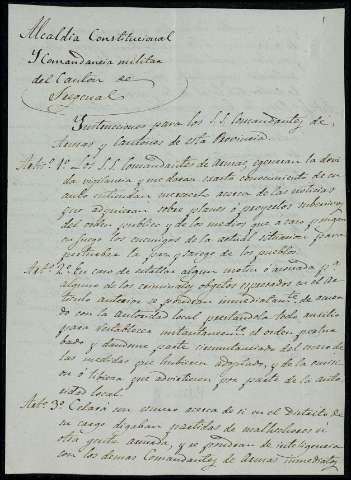 1
Alcaldia Constitucional
Y Comandancia militar
del Canton de
Fregenal
Instrucciones para los S.S. Comandantes de
Armas y Cantones de esta Provincia.
Arto. 1º Los S.S. Comandantes de armas, egerceran la devi
da vigilancia y me daran exacto conocimiento de cu
anto entiendan merecerlo acerca de las noticias
que adquieran sobre planes ó proyectos subersivos
del orden publico y de los medios que a caso pongan
en juego los enemigos de la actual situacion para
perturbar la paz y sosiego de los pueblos.
Arto. 2º En caso de estallar algun motin ó asonada pª
alguno de los criminales objetos espresados en el Ar
ticulo anterior se pondran inmediatamte. de acuer
do con la autoridad local prestandola todo auxilio
para restablecer instantaneamte. el orden pertur
bado y dandome parte circunstanciado del suceso de
las medidas que hubiesen adoptado, y de la omisi
on ó tibieza que advirtieren por parte de la auto
ridad local.
Arto. 3º Celará con esmero acerca de si en el Distrito de
su cargo divagan partidas de malhechores ú
otra gente armada, y se pondran de inteligencia
con los demas Comandantes de Armas inmediatos